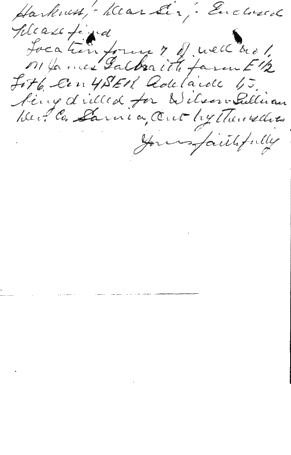 Harkness; Dear Sir; Enclosed
please find
Location form 7 of well No 1,
on James Galbraith farm E 1/2
Lot 6, Con 4 SER Adelaide Tp.
being drilled for Wilson-Sullivan
Dev. Co Sarnia, Ont by themselves
Yours faithfully